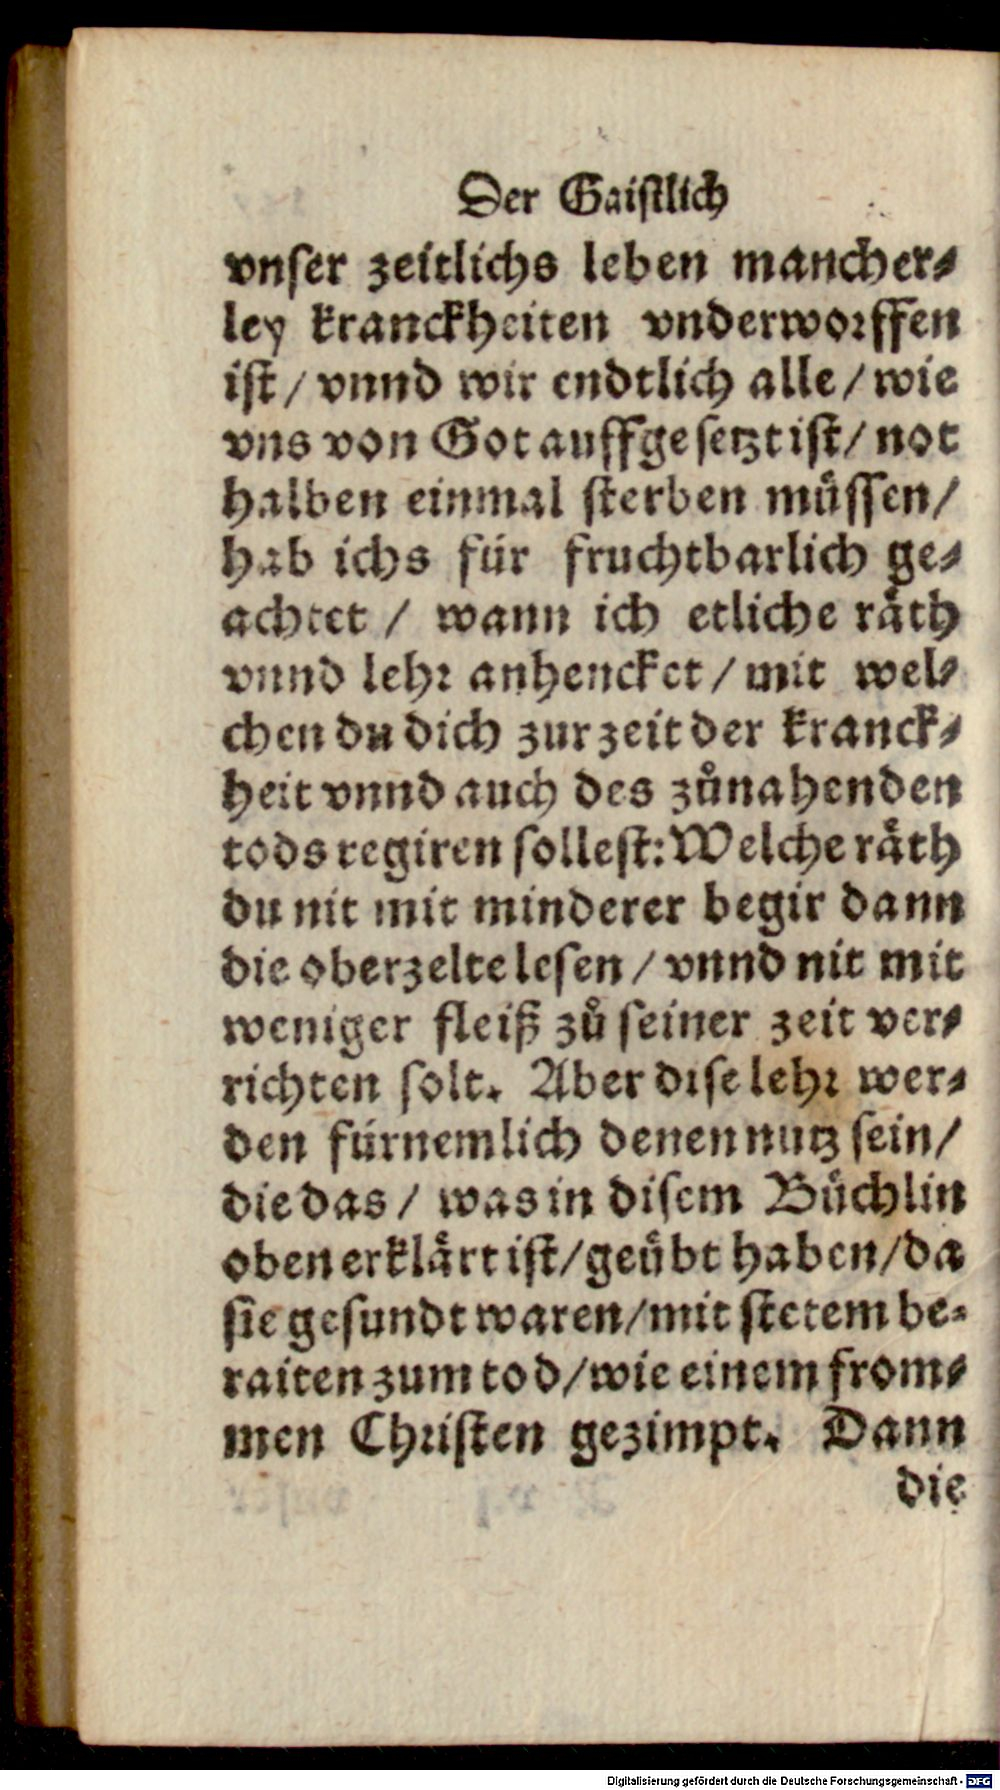 Der Gaistlich
vnser zeitlichs leben mancher⸗
ley kranckheiten vnderworffen
ist / vnnd wir endtlich alle / wie
vns von Got auffgesetzt ist / not
halben einmal sterben müssen /
hab ichs für fruchtbarlich ge⸗
achtet / wann ich etliche räth
vnnd lehr anhencket / mit wel⸗
chen du dich zur zeit der kranck⸗
heit vnnd auch des zůnahenden
tods regiren sollest: Welche räth
du nit mit minderer begir dann
die oberzelte lesen / vnnd nit mit
weniger fleiß zů seiner zeit ver⸗
richten solt. Aber dise lehr wer⸗
den fürnemlich denen nutz sein /
die das / was in disem Büchlin
oben erklärt ist / geübt haben / da
sie gesundt waren / mit stetem be⸗
raiten zum tod / wie einem from⸗
men Christen gezimpt. Dann
die
Digitalisierung gefördert durch die Deutsche Forschungsgemeinschaft - DFG